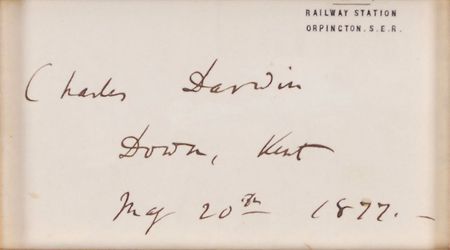 RAILWAY STATION
ORPINGTON. S.E.R.
Charles Darwin
Down, Kent
May 20th 1877.—